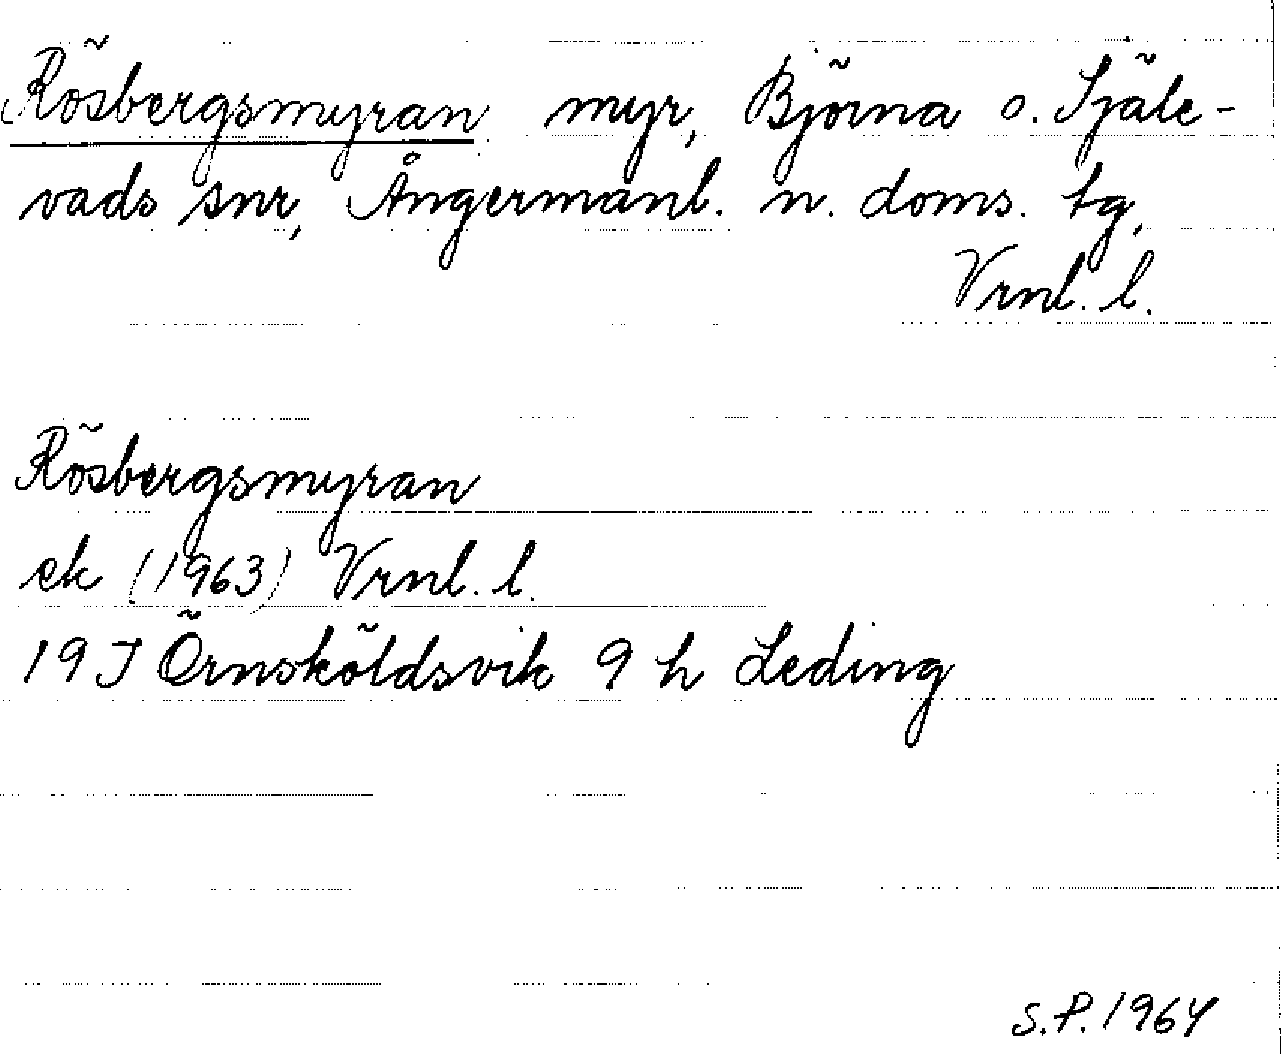 Rösbergsmyran myr, Björna o. Själe-
vads snr, Ångermanl. n. doms. tg,
Vrnl. l.
Rösbergsmyran
ek (1963) Vrnl. l.
19 J Örnsköldsvik 9 h Leding
S.P. 1964